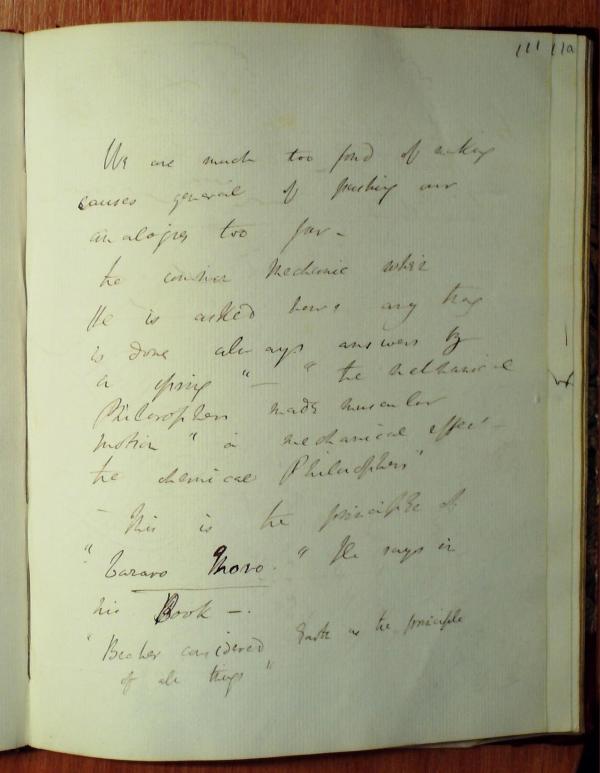 111 11a
We are much too fond of making
causes general of pushing our
analogies too far –
the Mechanic when
He is asked how any thing
is done always answers by
a spring " – " the Mechanical
Philosophers made muscular
motion " a mechanical effect –
the chemical Philosophers"
– This is the principle of
" " He says in
his Book –.
" Becher considered Earth as the principle
of all things "